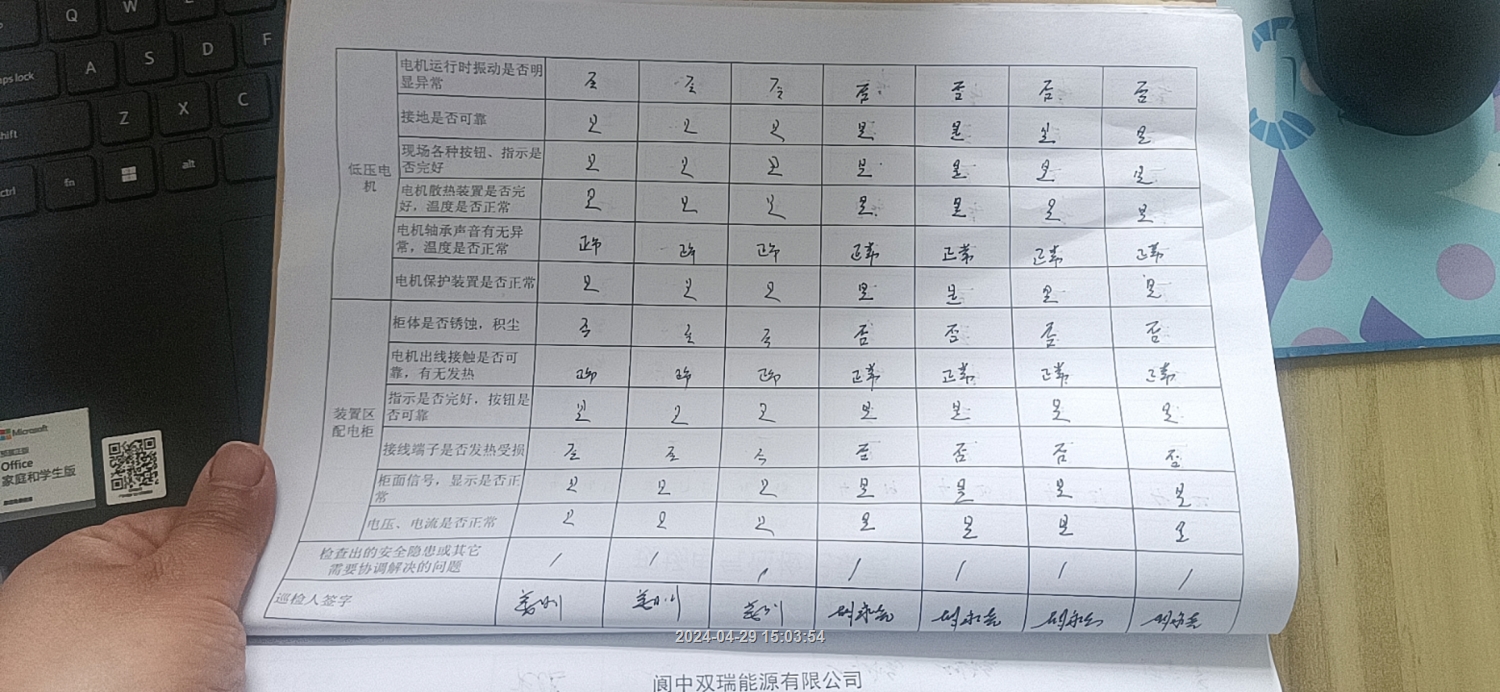 Q
W
A
S
D
F
ps lock
Z
X
C
hift
ctrl
fn
alt
Microsoft
Office
家庭和学生版
低压电
机
电机运行时振动是否明
显异常
否 否 否 否 否 否 否
接地是否可靠
是 是 是 是 是 是 是
现场各种按钮、指示是
否完好
是 是 是 是 是 是 是
电机散热装置是否完
好，温度是否正常
是 是 是 是 是 是 是
电机轴承声音有无异
常，温度是否正常
正常 正常 正常 正常 正常 正常 正常
电机保护装置是否正常
是 是 是 是 是 是 是
装置区
配电柜
柜体是否锈蚀，积尘
否 否 否 否 否 否 否
电机出线接触是否可
靠，有无发热
正常 正常 正常 正常 正常 正常 正常
指示是否完好，按钮是
否可靠
是 是 是 是 是 是 是
接线端子是否发热受损
否 否 否 否 否 否 否
柜面信号，显示是否正
常
是 是 是 是 是 是 是
电压、电流是否正常
是 是 是 是 是 是 是
检查出的安全隐患或其它
需要协调解决的问题
/ / / / / / /
巡检人签字
2024-04-29 15:03:54
阆中双瑞能源有限公司